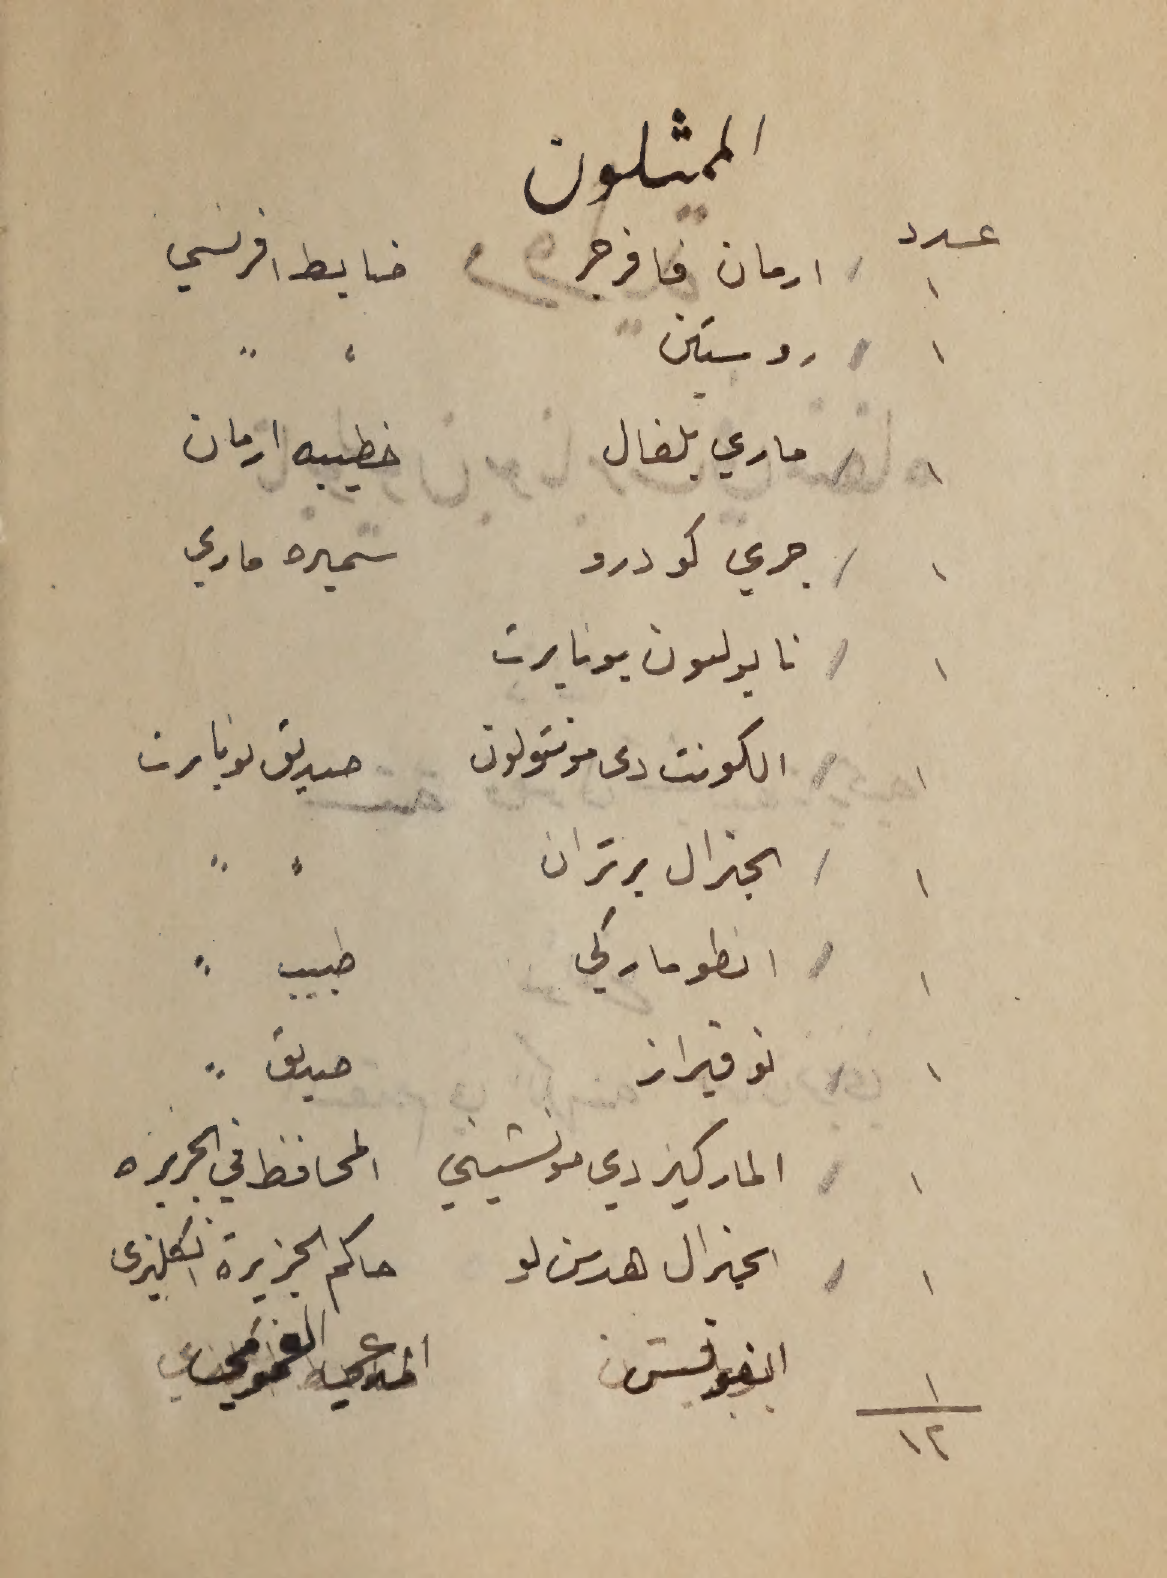 الممثلون
عدد
١ / ارمان فافرجر ضابط افرنسي
١ / روستين " "
١ / ماري بلفال خطيبه ارمان
١ / جري كودرو سميره ماري
١ / نابوليون بونابرت
١ / الكونت دي مونتولون صديق بونابرت
١ / الجنرال برتران " "
١ / انطوماركي طبيب "
١ / نوفيراز صديق "
١ / الماركيز دي مونشيني المحافظ في الجزيره
١ / الجنرال هدسن لو حاكم الجزيرة انكليزي
١ المدعي العمومي
١٢